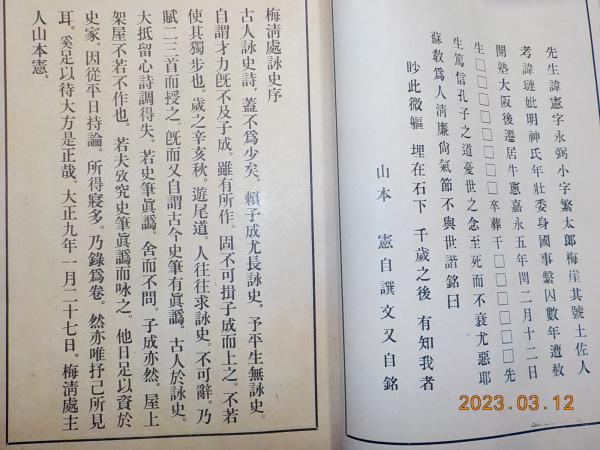 先生諱憲字永弼小字繁太郎梅崖其號土佐人
考諱璉妣明神氏年壯委身國事繫囚數年遭赦
開塾大阪後遷居牛窻嘉永五年閏二月十二日
生□□□□□□□□卒葬于□□□□□□先
生篤信孔子之道憂世之念至死而不衰尤惡耶
蘇敎爲人淸廉尙氣節不與世諧銘曰
眇此微軀 埋在石下 千歲之後 有知我者
山本 憲自譔文又自銘
梅淸處詠史序
古人詠史詩、蓋不爲少矣。賴子成尤長詠史。予平生無詠史。
自謂才力旣不及子成。雖有所作。固不可揜子成而上之。不若
使其獨步也。歲之辛亥秋。遊尾道。人往往求詠史。不可辭。乃
賦二三首而授之。旣而又自謂古今史筆有眞譌。古人於詠史。
大抵留心詩調得失。若史筆眞譌。舍而不問。子成亦然。屋上
架屋不若不作也。若夫攷究史筆眞譌而咏之。他日足以資於
史家。因從平日持論。所得寢多。乃錄爲卷。然亦唯抒己所見
耳。奚足以待大方是正哉。大正九年一月二十七日。梅淸處主
人山本憲。
2023.03.12